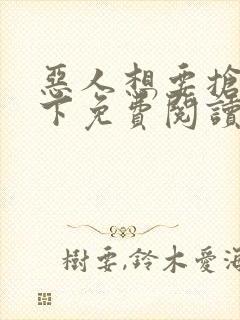 惡人想要搶
下免費閱讀
樹要,鈴木愛海